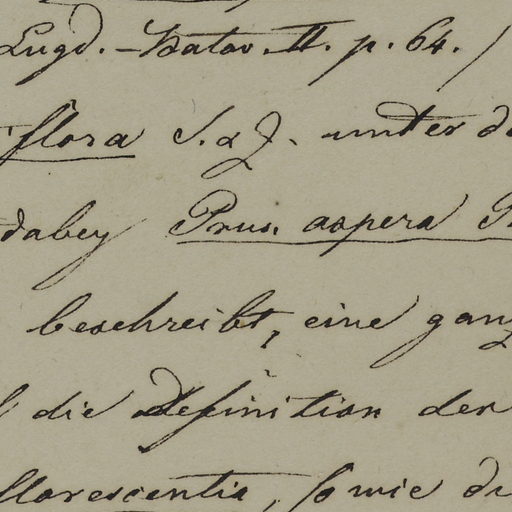 Lugd.-Batav. II. p. 64. /
flora S. & Z. unter
dabey Prun. aspera
beschreibt, eine ganz
die Definition der
florescentia, so wie